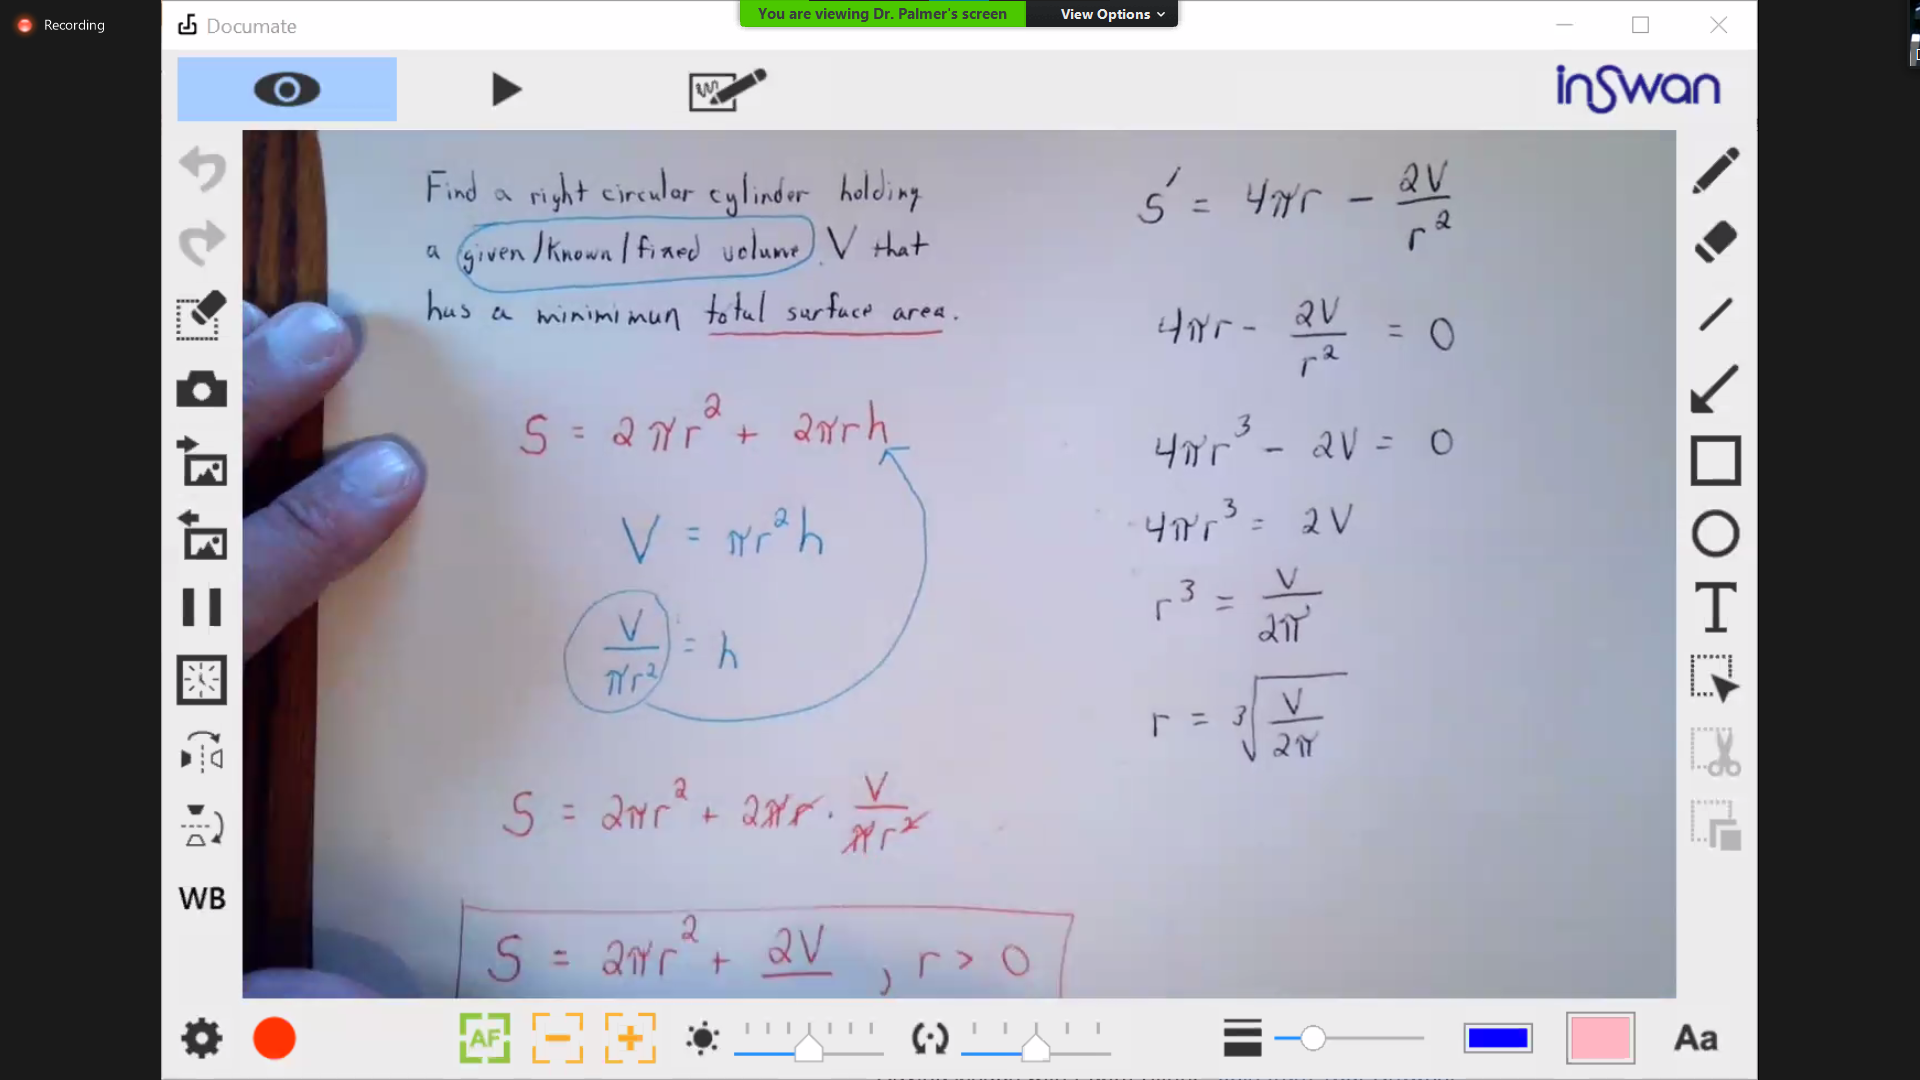 Recording
You are viewing Dr. Palmer's screen View Options
Documate
inSwan
Find a right circular cylinder holding
a given/known/fixed volume V that
has a minimimun total surface area.
S = 2πr² + 2πrh
V = πr²h
V/πr² = h
S = 2πr² + 2πr · V/πr²
S = 2πr² + 2V , r > 0
S' = 4πr - 2V/r²
4πr - 2V/r² = 0
4πr³ - 2V = 0
4πr³ = 2V
r³ = V/2π
r = ³√(V/2π)
T
WB
AF
Aa